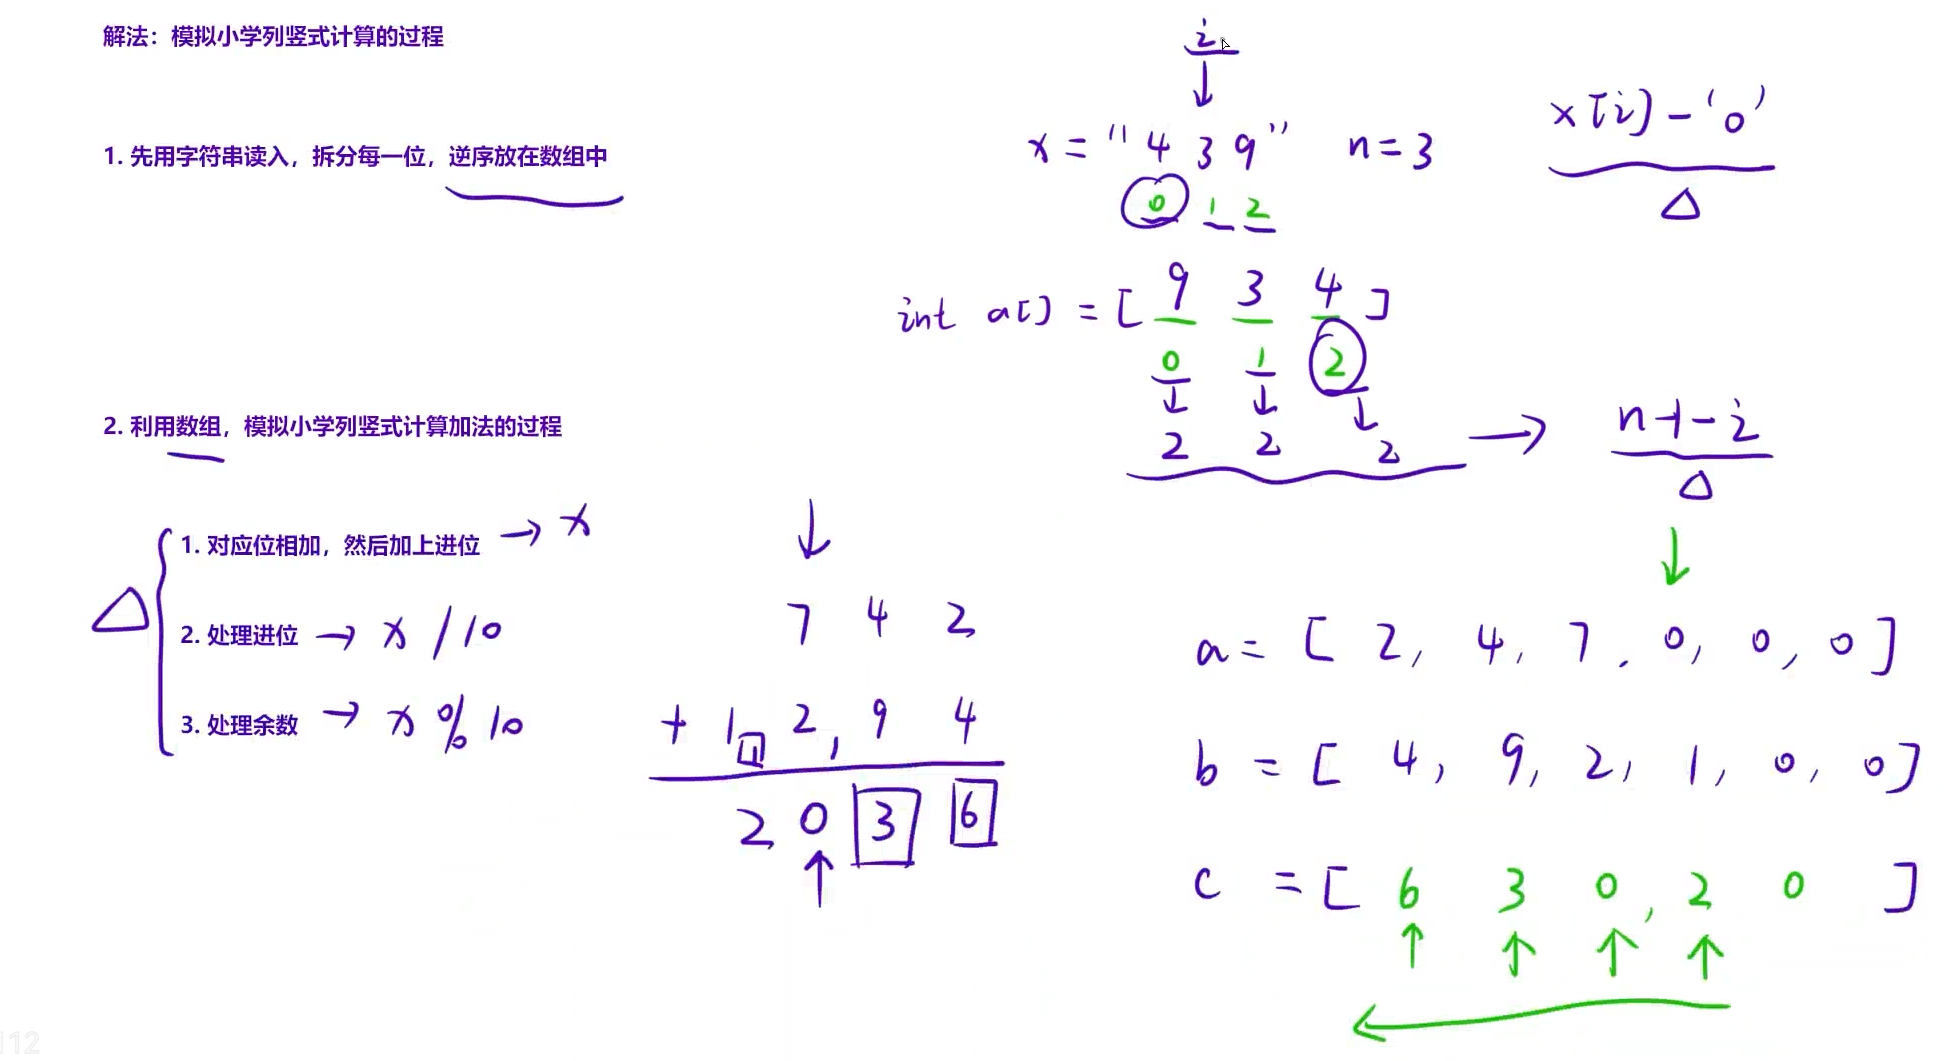 解法：模拟小学列竖式计算的过程
1. 先用字符串读入，拆分每一位，逆序放在数组中
i
x = "4 3 9"  n = 3
0 1 2
x[i] - '0'
△
int a[] = [ 9 3 4 ]
0 1 2
2 2 2
n-1-i
△
2. 利用数组，模拟小学列竖式计算加法的过程
△
1. 对应位相加，然后加上进位 → x
2. 处理进位 → x / 10
3. 处理余数 → x % 10
7 4 2
+ 1 2 9 4
2 0 3 6
a = [ 2, 4, 7, 0, 0, 0 ]
b = [ 4, 9, 2, 1, 0, 0 ]
c = [ 6 3 0, 2 0 ]
112